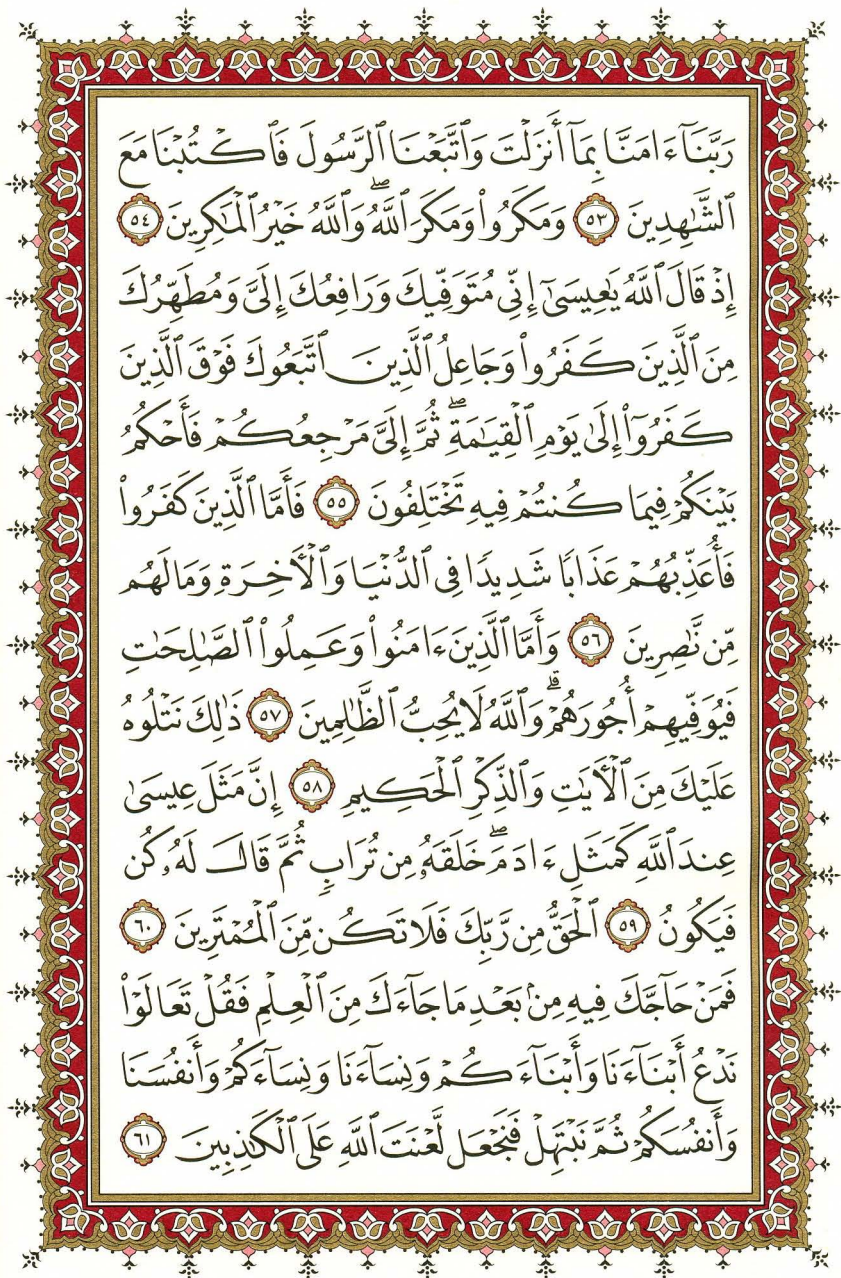 رَبَّنَآ ءَامَنَّا بِمَآ أَنزَلْتَ وَٱتَّبَعْنَا ٱلرَّسُولَ فَٱكْتُبْنَا مَعَ
ٱلشَّٰهِدِينَ ٥٣ وَمَكَرُوا۟ وَمَكَرَ ٱللَّهُ ۖ وَٱللَّهُ خَيْرُ ٱلْمَٰكِرِينَ ٥٤
إِذْ قَالَ ٱللَّهُ يَٰعِيسَىٰٓ إِنِّى مُتَوَفِّيكَ وَرَافِعُكَ إِلَىَّ وَمُطَهِّرُكَ
مِنَ ٱلَّذِينَ كَفَرُوا۟ وَجَاعِلُ ٱلَّذِينَ ٱتَّبَعُوكَ فَوْقَ ٱلَّذِينَ
كَفَرُوٓا۟ إِلَىٰ يَوْمِ ٱلْقِيَٰمَةِ ۖ ثُمَّ إِلَىَّ مَرْجِعُكُمْ فَأَحْكُمُ
بَيْنَكُمْ فِيمَا كُنتُمْ فِيهِ تَخْتَلِفُونَ ٥٥ فَأَمَّا ٱلَّذِينَ كَفَرُوا۟
فَأُعَذِّبُهُمْ عَذَابًا شَدِيدًا فِى ٱلدُّنْيَا وَٱلْـَٔاخِرَةِ وَمَا لَهُم
مِّن نَّٰصِرِينَ ٥٦ وَأَمَّا ٱلَّذِينَ ءَامَنُوا۟ وَعَمِلُوا۟ ٱلصَّٰلِحَٰتِ
فَيُوَفِّيهِمْ أُجُورَهُمْ ۗ وَٱللَّهُ لَا يُحِبُّ ٱلظَّٰلِمِينَ ٥٧ ذَٰلِكَ نَتْلُوهُ
عَلَيْكَ مِنَ ٱلْـَٔايَٰتِ وَٱلذِّكْرِ ٱلْحَكِيمِ ٥٨ إِنَّ مَثَلَ عِيسَىٰ
عِندَ ٱللَّهِ كَمَثَلِ ءَادَمَ ۖ خَلَقَهُۥ مِن تُرَابٍ ثُمَّ قَالَ لَهُۥ كُن
فَيَكُونُ ٥٩ ٱلْحَقُّ مِن رَّبِّكَ فَلَا تَكُن مِّنَ ٱلْمُمْتَرِينَ ٦٠
فَمَنْ حَآجَّكَ فِيهِ مِنۢ بَعْدِ مَا جَآءَكَ مِنَ ٱلْعِلْمِ فَقُلْ تَعَالَوْا۟
نَدْعُ أَبْنَآءَنَا وَأَبْنَآءَكُمْ وَنِسَآءَنَا وَنِسَآءَكُمْ وَأَنفُسَنَا
وَأَنفُسَكُمْ ثُمَّ نَبْتَهِلْ فَنَجْعَل لَّعْنَتَ ٱللَّهِ عَلَى ٱلْكَٰذِبِينَ ٦١